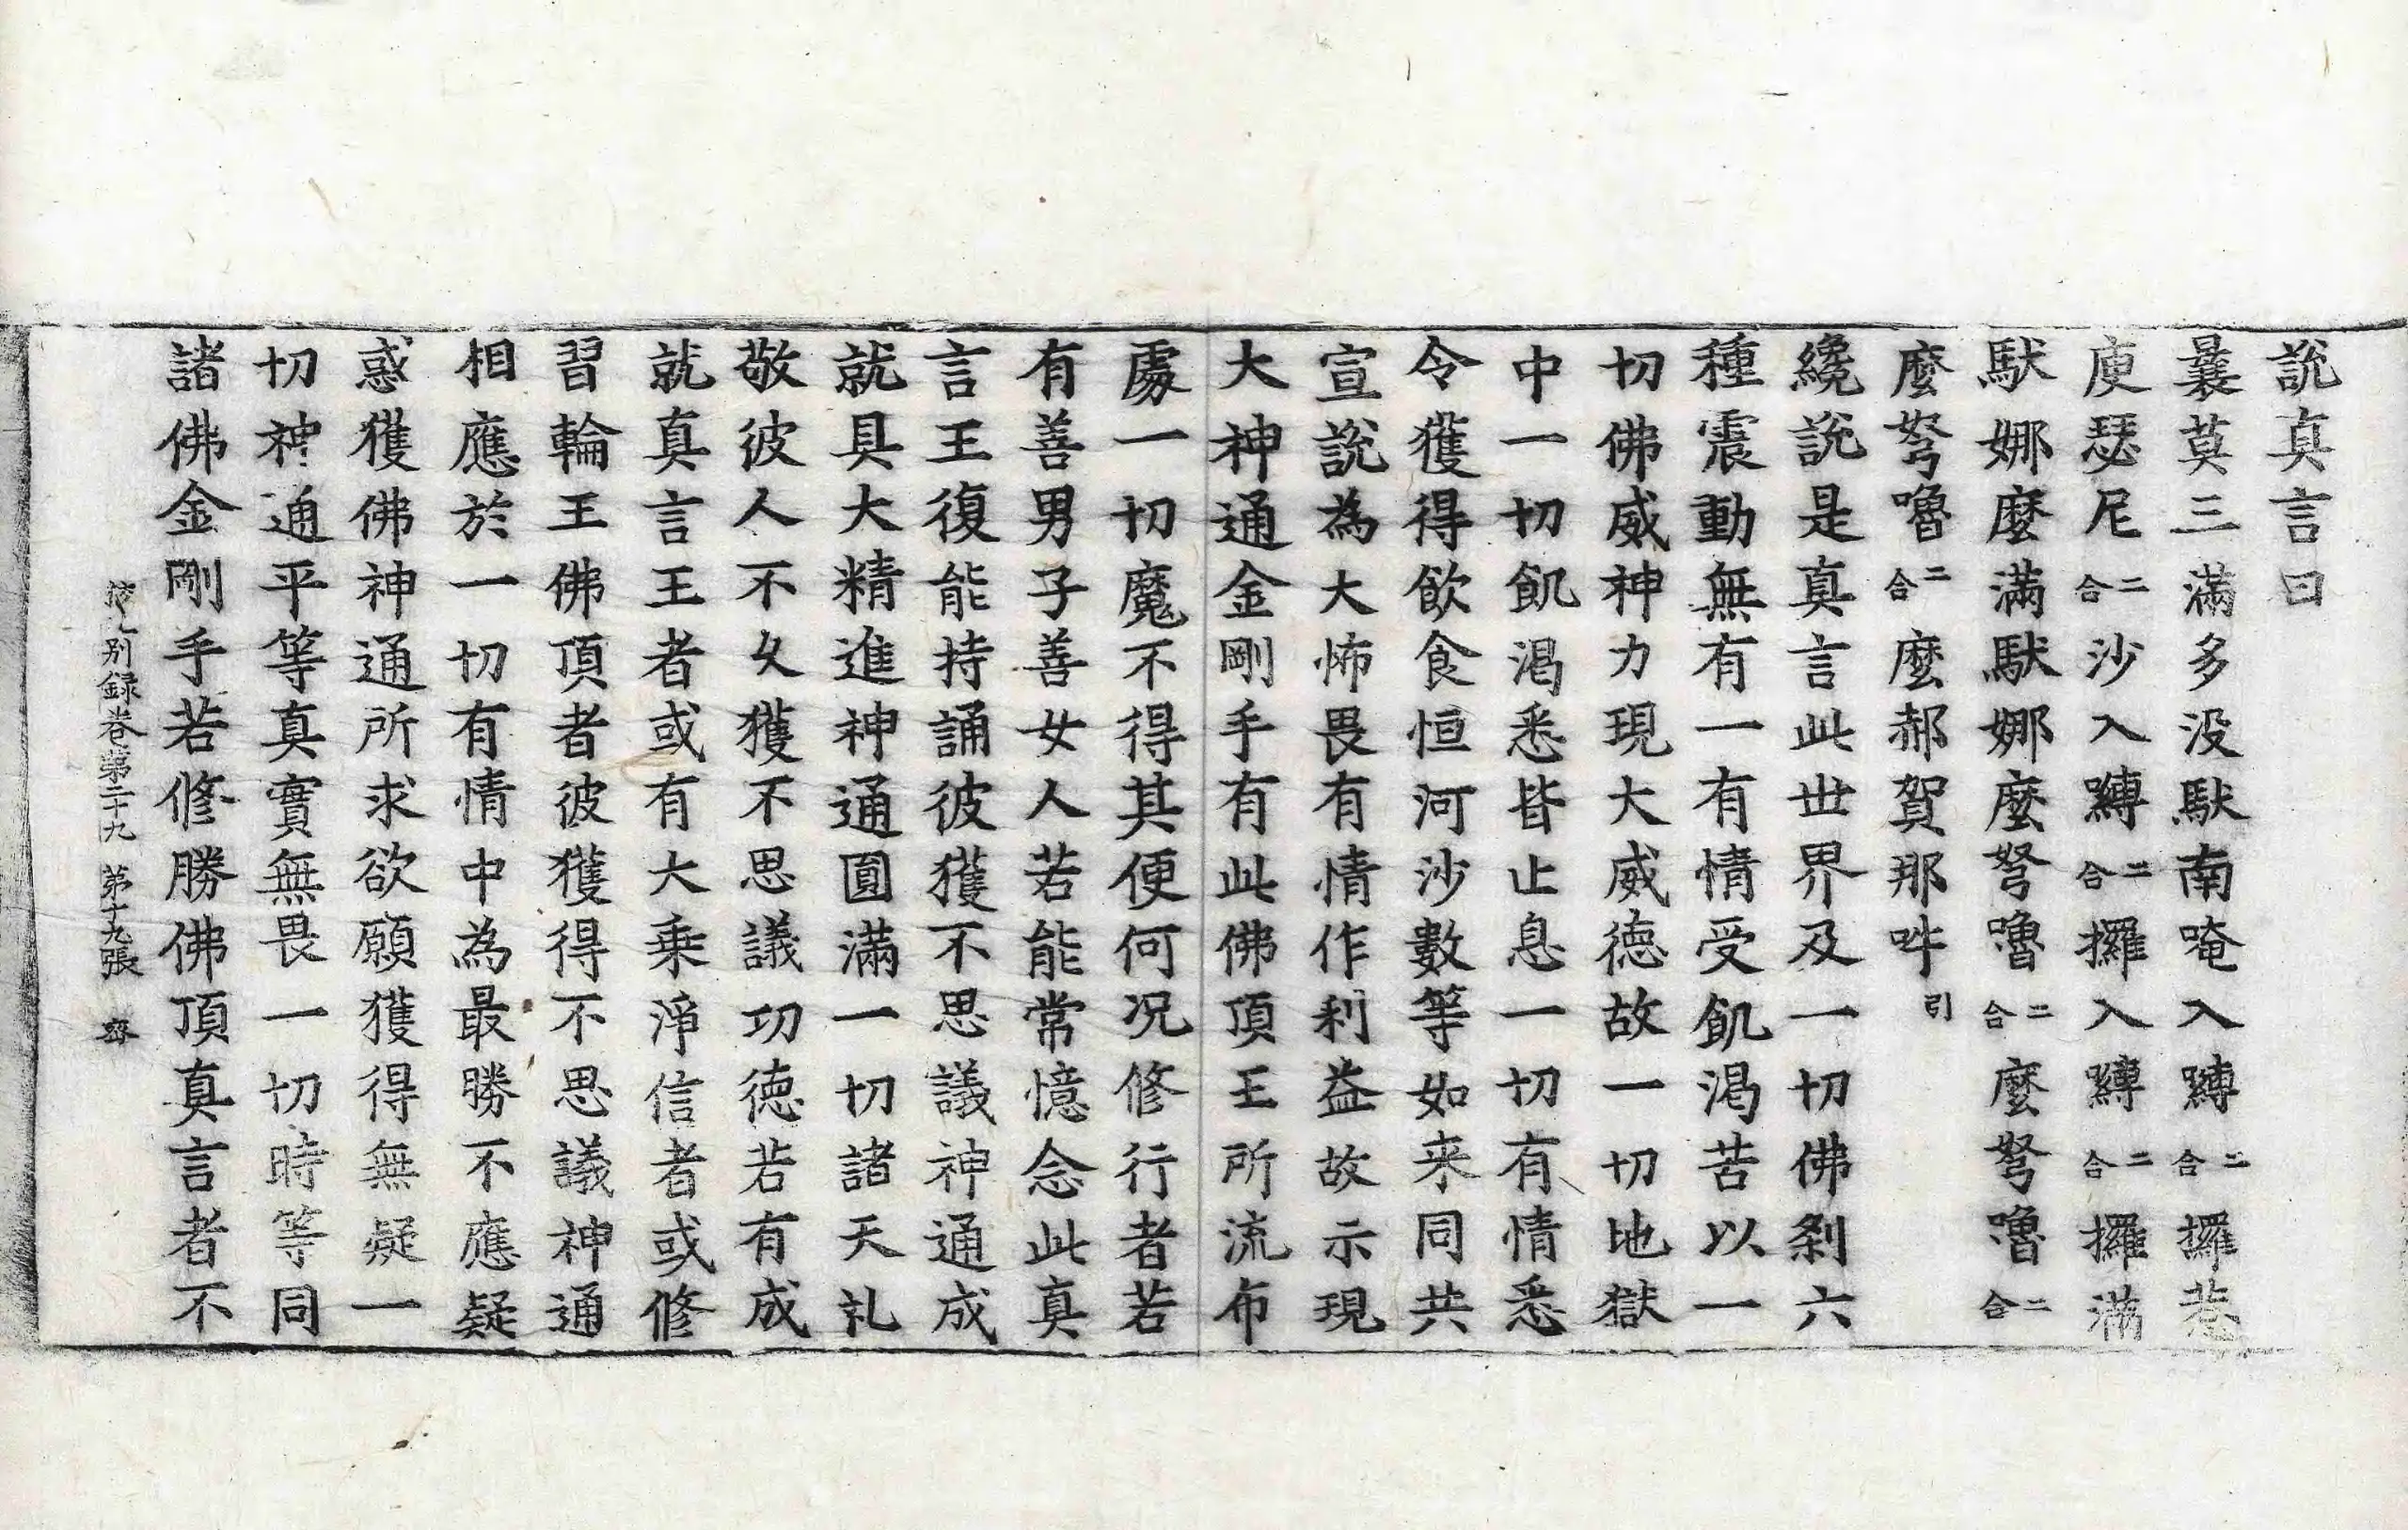 說真言曰
曩莫三滿多沒馱南唵入嚩二合攞惹
庾瑟尼二合沙入嚩二合攞入嚩二合攞滿
馱娜麼滿馱娜麼弩嚕二合麼弩嚕二合
麼弩嚕二合麼郝賀那吽引
纔說是真言此世界及一切佛剎六
種震動無有一有情受飢渴苦以一
切佛威神力現大威德故一切地獄
中一切飢渴悉皆止息一切有情悉
令獲得飲食恒河沙數等如来同共
宣說為大怖畏有情作利益故示現
大神通金剛手有此佛頂王所流布
處一切魔不得其便何况修行者若
有善男子善女人若能常憶念此真
言王復能持誦彼獲不思議神通成
就具大精進神通圓滿一切諸天礼
敬彼人不久獲不思議功德若有成
就真言王者或有大乘淨信者或修
習輪王佛頂者彼獲得不思議神通
相應於一切有情中為最勝不應疑
惑獲佛神通所求欲願獲得無疑一
切神通平等真實無畏一切時等同
諸佛金剛手若修勝佛頂真言者不
別録卷第二十九 第十九張